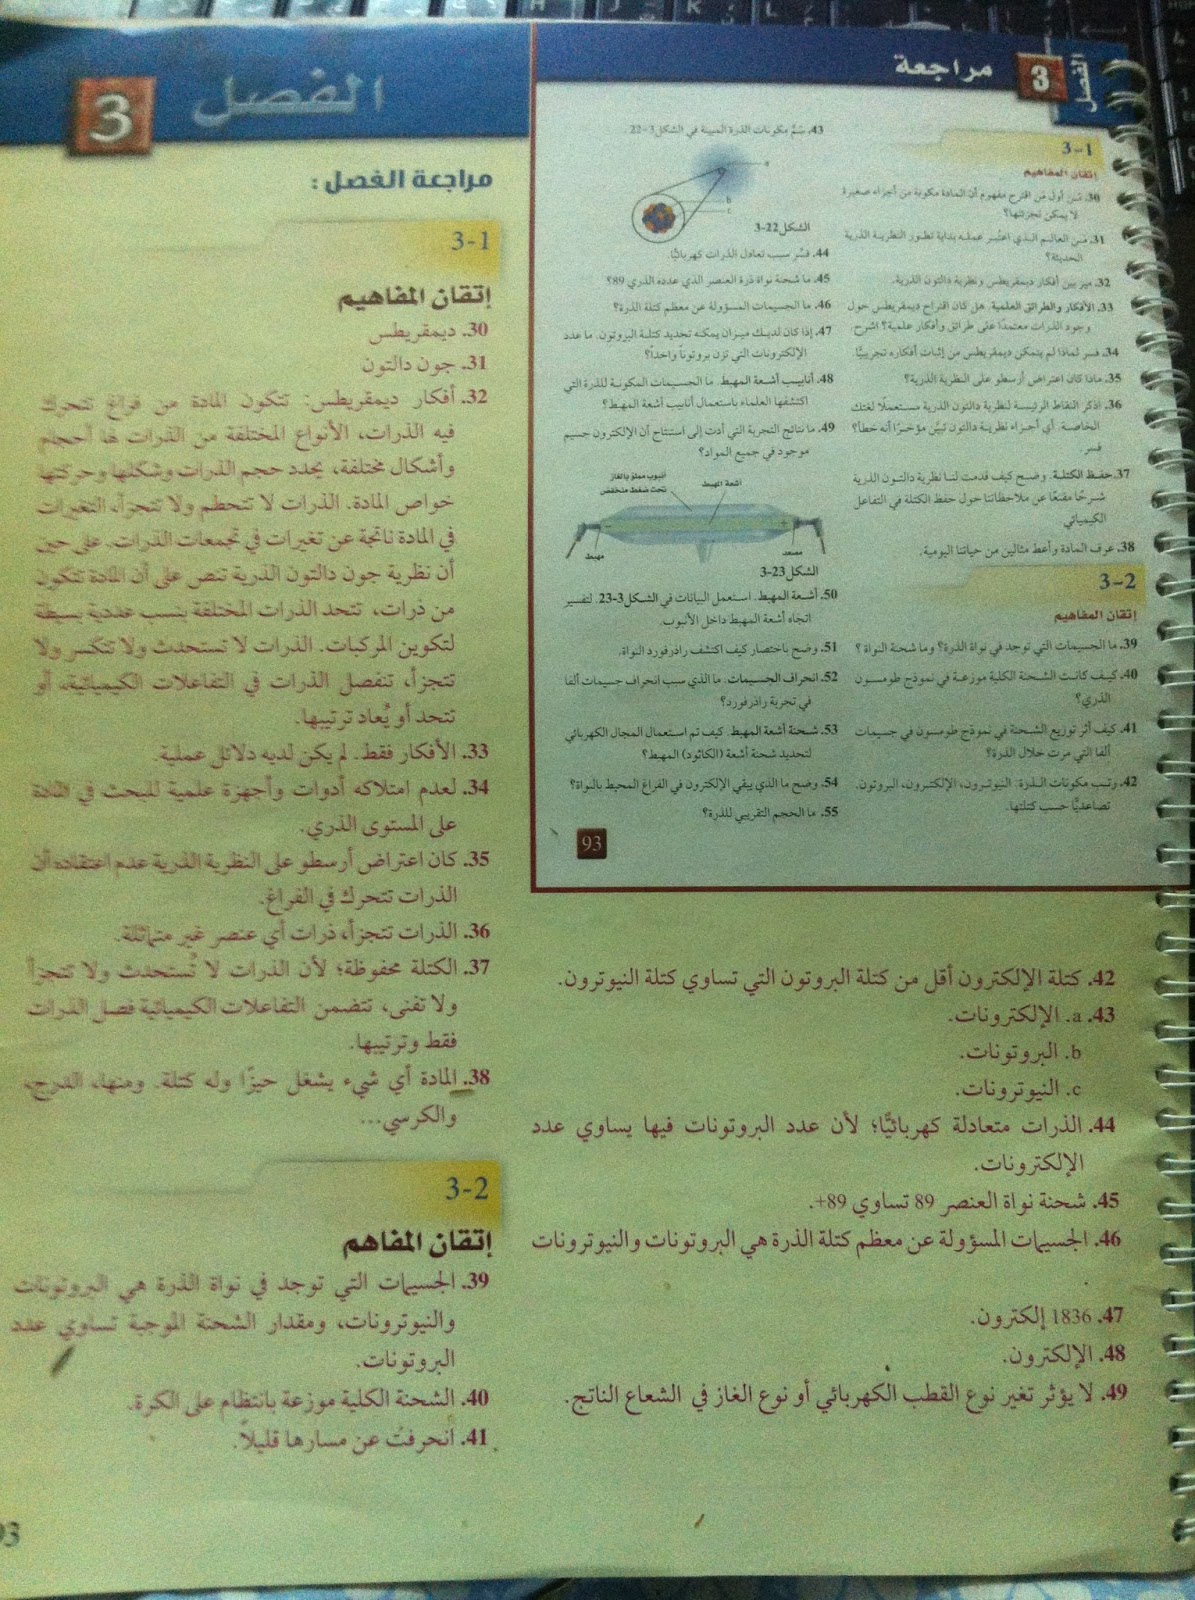 الفصل 3
مراجعة الفصل :
3-1
إتقان المفاهيم
30. ديمقريطس
31. جون دالتون
32. أفكار ديمقريطس: تتكون المادة من فراغ تتحرك
فيه الذرات، الأنواع المختلفة من الذرات لها أحجام
وأشكال مختلفة، يحدد حجم الذرات وشكلها وحركتها
خواص المادة. الذرات لا تتحطم ولا تتجزأ، التغيرات
في المادة ناتجة عن تغيرات في تجمعات الذرات. على حين
أن نظرية جون دالتون الذرية تنص على أن المادة تتكون
من ذرات، تتحد الذرات المختلفة بنسب عددية بسيطة
لتكوين المركبات. الذرات لا تستحدث ولا تتكسر ولا
تتجزأ، تنفصل الذرات في التفاعلات الكيميائية، أو
تتحد أو يُعاد ترتيبها.
33. الأفكار فقط. لم يكن لديه دلائل عملية.
34. لعدم امتلاكه أدوات وأجهزة علمية للبحث في المادة
على المستوى الذري.
35. كان اعتراض أرسطو على النظرية الذرية عدم اعتقاده أن
الذرات تتحرك في الفراغ.
36. الذرات تتجزأ، ذرات أي عنصر غير متماثلة.
37. الكتلة محفوظة؛ لأن الذرات لا تُستحدث ولا تتجزأ
ولا تفنى، تتضمن التفاعلات الكيميائية فصل الذرات
فقط وترتيبها.
38. المادة أي شيء يشغل حيزًا وله كتلة. ومنها، الدرج،
والكرسي...
3-2
إتقان المفاهم
39. الجسيمات التي توجد في نواة الذرة هي البروتونات
والنيوترونات، ومقدار الشحنة الموجبة تساوي عدد
البروتونات.
40. الشحنة الكلية موزعة بانتظام على الكرة.
41. انحرفت عن مسارها قليلاً.
93
الفصل 3 مراجعة
3-1
إتقان المفاهيم
30. مَن أول مَن اقترح مفهوم أن المادة مكونة من أجزاء صغيرة
لا يمكن تجزئتها؟
31. مَن العالم الذي اعتُبر عمله بداية تطور النظرية الذرية
الحديثة؟
32. ميز بين أفكار ديمقريطس ونظرية دالتون الذرية.
33. الأفكار والطرائق العلمية. هل كان اقتراح ديمقريطس حول
وجود الذرات معتمدًا على طرائق وأفكار علمية؟ اشرح
34. فسر لماذا لم يتمكن ديمقريطس من إثبات أفكاره تجريبيًّا
35. ماذا كان اعتراض أرسطو على النظرية الذرية؟
36. اذكر النقاط الرئيسة لنظرية دالتون الذرية مستعملًا لغتك
الخاصة. أي أجزاء نظرية دالتون تبيَّن مؤخرًا أنه خطأ؟
فسر.
37. حفظ الكتلة. وضح كيف قدمت لنا نظرية دالتون الذرية
شرحًا مقنعًا عن ملاحظاتنا حول حفظ الكتلة في التفاعل
الكيميائي
38. عرف المادة وأعط مثالين من حياتنا اليومية.
3-2
إتقان المفاهيم
39. ما الجسيمات التي توجد في نواة الذرة؟ وما شحنة النواة؟
40. كيف كانت الشحنة الكلية موزعة في نموذج طومسون
الذري؟
41. كيف أثر توزيع الشحنة في نموذج طومسون في جسيمات
ألفا التي مرت خلال الذرة؟
42. رتب مكونات الذرة: النيوترون، الإلكترون، البروتون.
تصاعديًّا حسب كتلتها.
43. سَمِّ مكونات الذرة المبينة في الشكل 22-3.
a
b
c
الشكل 22-3
44. فسّر سبب تعادل الذرات كهربائيًّا.
45. ما شحنة نواة ذرة العنصر الذي عدده الذري 89؟
46. ما الجسيمات المسؤولة عن معظم كتلة الذرة؟
47. إذا كان لديك ميزان يمكنه تحديد كتلة البروتون. ما عدد
الإلكترونات التي تزن بروتونًا واحدًا؟
48. أنابيب أشعة المهبط. ما الجسيمات المكونة للذرة التي
اكتشفها العلماء باستعمال أنابيب أشعة المهبط؟
49. ما نتائج التجربة التي أدت إلى استنتاج أن الإلكترون جسيم
موجود في جميع المواد؟
أنبوب مملوء بالغاز
تحت ضغط منخفض
أشعة المهبط
مهبط
مصعد
الشكل 23-3
50. أشعة المهبط. استعمل البيانات في الشكل 23-3 لتفسير
اتجاه أشعة المهبط داخل الأنبوب.
51. وضح باختصار كيف اكتشف راذرفورد النواة.
52. انحراف الجسيمات. ما الذي سبب انحراف جسيمات ألفا
في تجربة راذرفورد؟
53. شحنة أشعة المهبط. كيف تم استعمال المجال الكهربائي
لتحديد شحنة أشعة (الكاثود) المهبط؟
54. وضح ما الذي يبقي الإلكترون في الفراغ المحيط بالنواة؟
55. ما الحجم التقريبي للذرة؟
93
42. كتلة الإلكترون أقل من كتلة البروتون التي تساوي كتلة النيوترون.
43. a. الإلكترونات.
b. البروتونات.
c. النيوترونات.
44. الذرات متعادلة كهربائيًّا؛ لأن عدد البروتونات فيها يساوي عدد
الإلكترونات.
45. شحنة نواة العنصر 89 تساوي 89+.
46. الجسيمات المسؤولة عن معظم كتلة الذرة هي البروتونات والنيوترونات
.
47. 1836 إلكترون.
48. الإلكترون.
49. لا يؤثر تغير نوع القطب الكهربائي أو نوع الغاز في الشعاع الناتج.